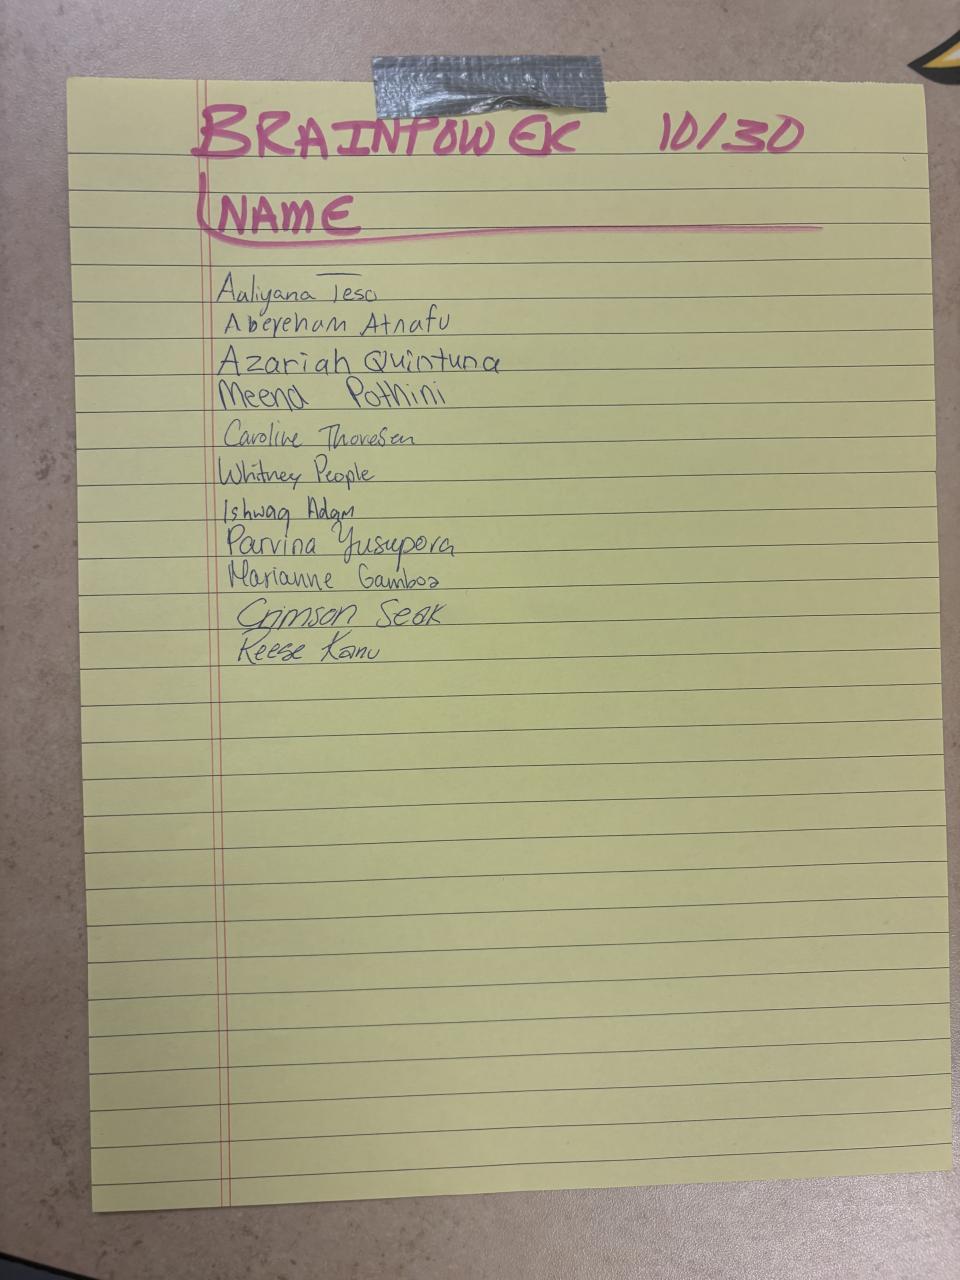 BRAINPOWER 10/30
NAME
Aaliyana Teso
Abereham Atnafu
Azariah Quintuna
Meena Pothini
Caroline Thoresen
Whitney People
Ishwaq Adam
Parvina Yusupova
Marianne Gamboa
Crimson Seok
Reese Kanu